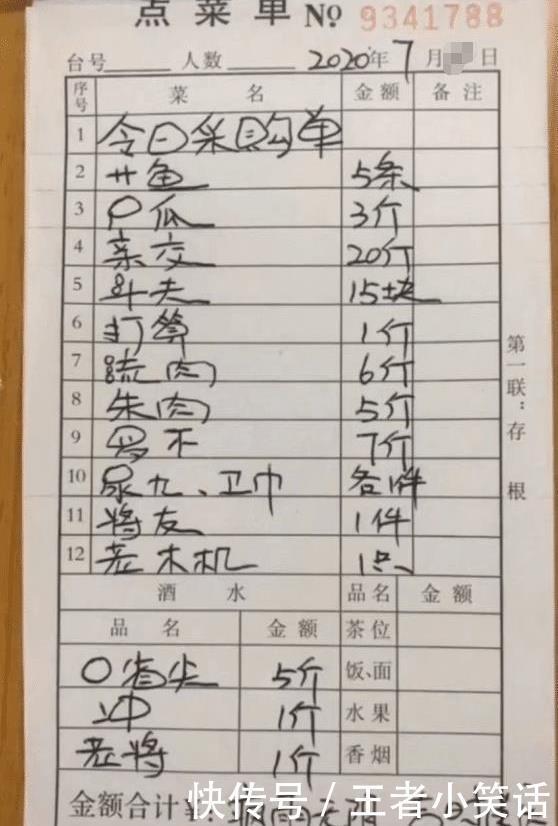 点菜单 No 9341788
台号 人数 2020年7月 日
序号 菜名 金额 备注
1 今日采购单
2 廿鱼 5条
3 户瓜 3斤
4 亲交 20斤
5 斗夫 15块
6 打算 1斤
7 硫肉 6斤
8 朱肉 5斤
9 罗不 7斤
10 尿九、卫巾 各1件
11 将友 1件
12 老木机 1只
酒水 品名 金额
品名 金额 茶位
口省尖 5斤 饭、面
冲 1斤 水果
老将 1斤 香烟
金额合计
第一联:存根
快传号/王者小笑话